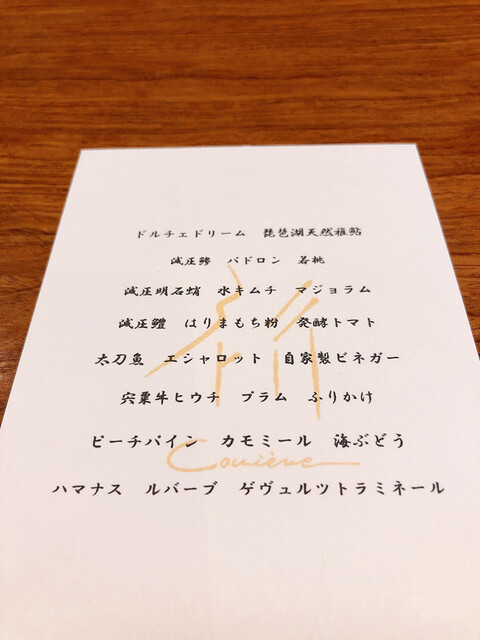 ドルチェドリーム 琵琶湖天然稚鮎
減圧鯵 パドロン 若桃
減圧明石蛸 水キムチ マジョラム
減圧鱧 はりまもち粉 発酵トマト
太刀魚 エシャロット 自家製ビネガー
宍粟牛ヒウチ プラム ふりかけ
ピーチパイン カモミール 海ぶどう
Couième
ハマナス ルバーブ ゲヴュルツトラミネール